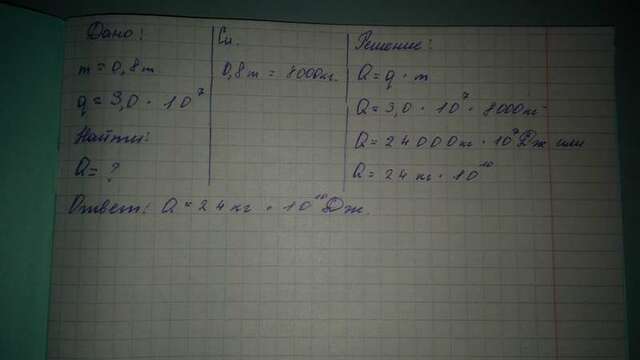 Дано:
m = 0,8 т
q = 3,0 · 10⁷
Найти:
Q = ?
Си.
0,8 т = 8000 кг.
Решение:
Q = q · m
Q = 3,0 · 10⁷ · 8000 кг
Q = 24000 кг · 10⁷ Дж или
Q = 24 кг · 10¹⁰
Ответ: Q = 24 кг · 10¹⁰ Дж.